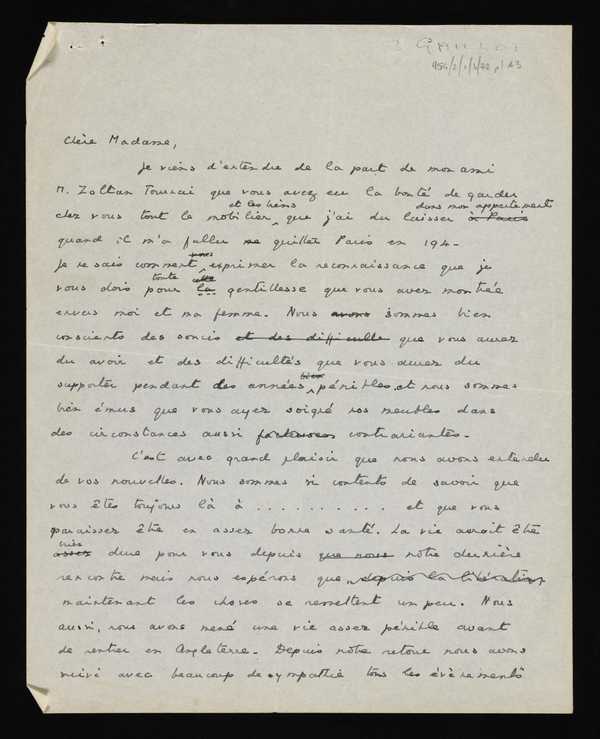 Chère Madame,
Je viens d'entendre de la part de mon ami
M. Zoltan que vous avez eu la bonté de garder
et les biens dans mon appartement
chez vous tout le mobilier, que j'ai du laisser à Paris
quand il m'a fallu me quitter Paris en 194-
Je ne sais comment exprimer la reconnaissance que je
toute cette
vous dois pour la gentillesse que vous avez montrée
envers moi et ma femme. Nous avons sommes bien
conscients des soucis et des difficulté que vous avez
du avoir et des difficultés que vous avez du
bien
supporter pendant des années pénibles, et nous sommes
bien émus que vous ayez soigné nos meubles dans
des circonstances aussi contrariantes.
C'est avec grand plaisir que nous avons entendu
de vos nouvelles. Nous sommes si contents de savoir que
vous êtes toujours là à . . . . . . . . . . et que vous
paraissez être en assez bonne santé. La vie aurait être
très
assez dure pour vous depuis que nous notre dernière
rencontre mais nous espérons que depuis la libération
maintenant les choses se remettent un peu. Nous
aussi, nous avons mené une vie assez pénible avant
de rentrer en Angleterre. Depuis notre retour nous avons
suivi avec beaucoup de sympathie tous les évènements